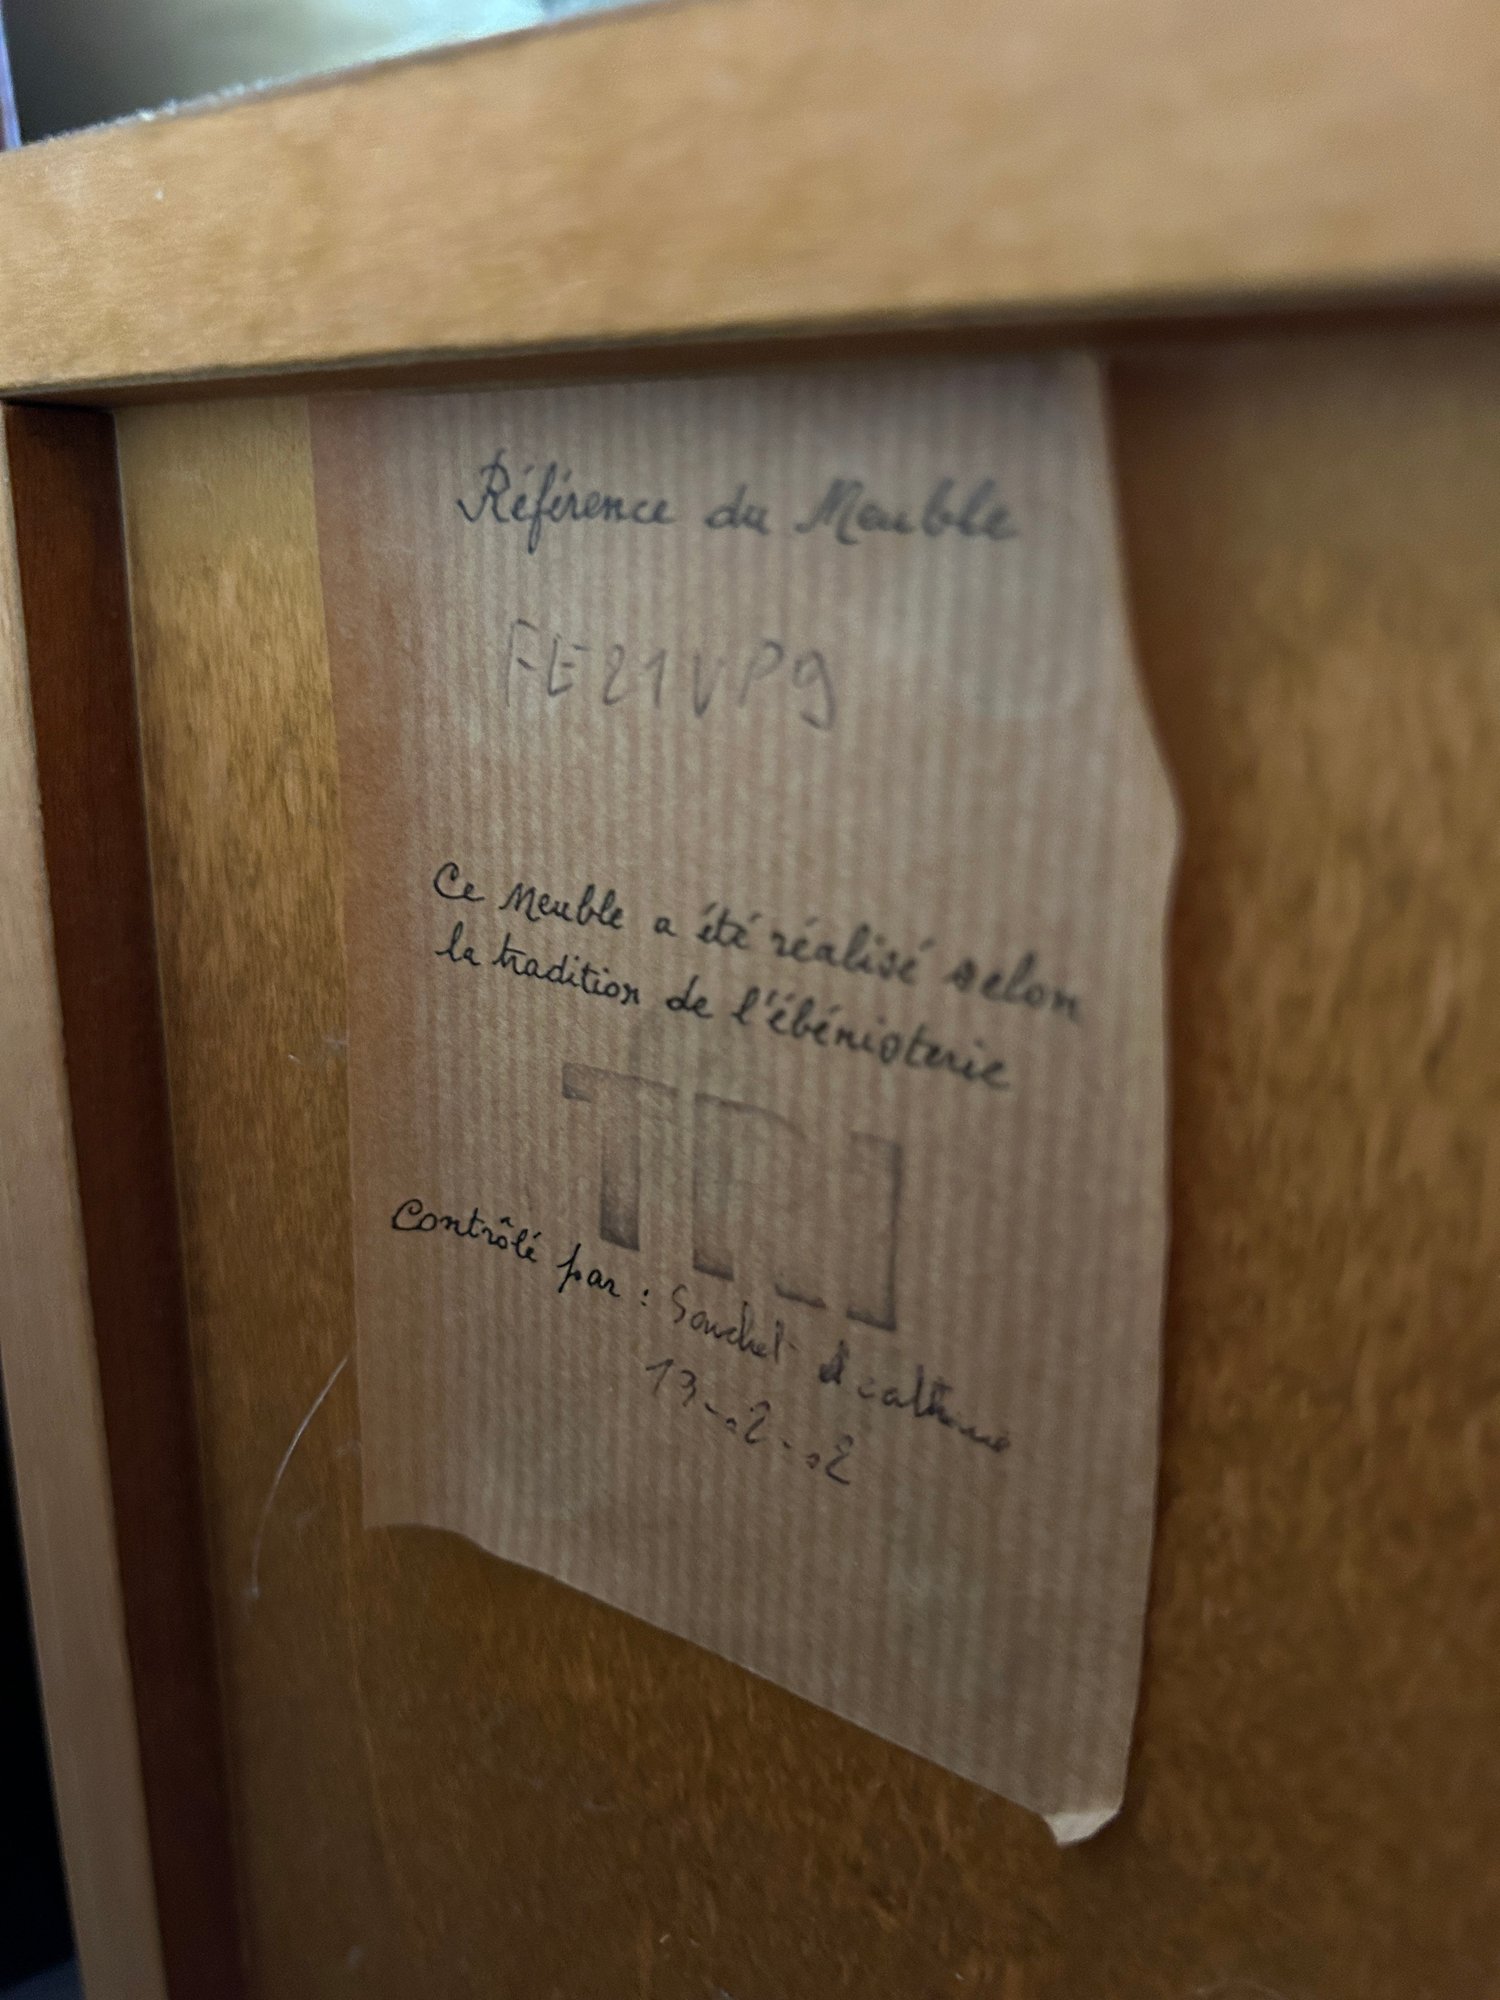 Référence du Meuble
FE21VP9
Ce Meuble a été réalisé selon
la tradition de l'ébénisterie
Contrôlé par : Souchet
13-02-02